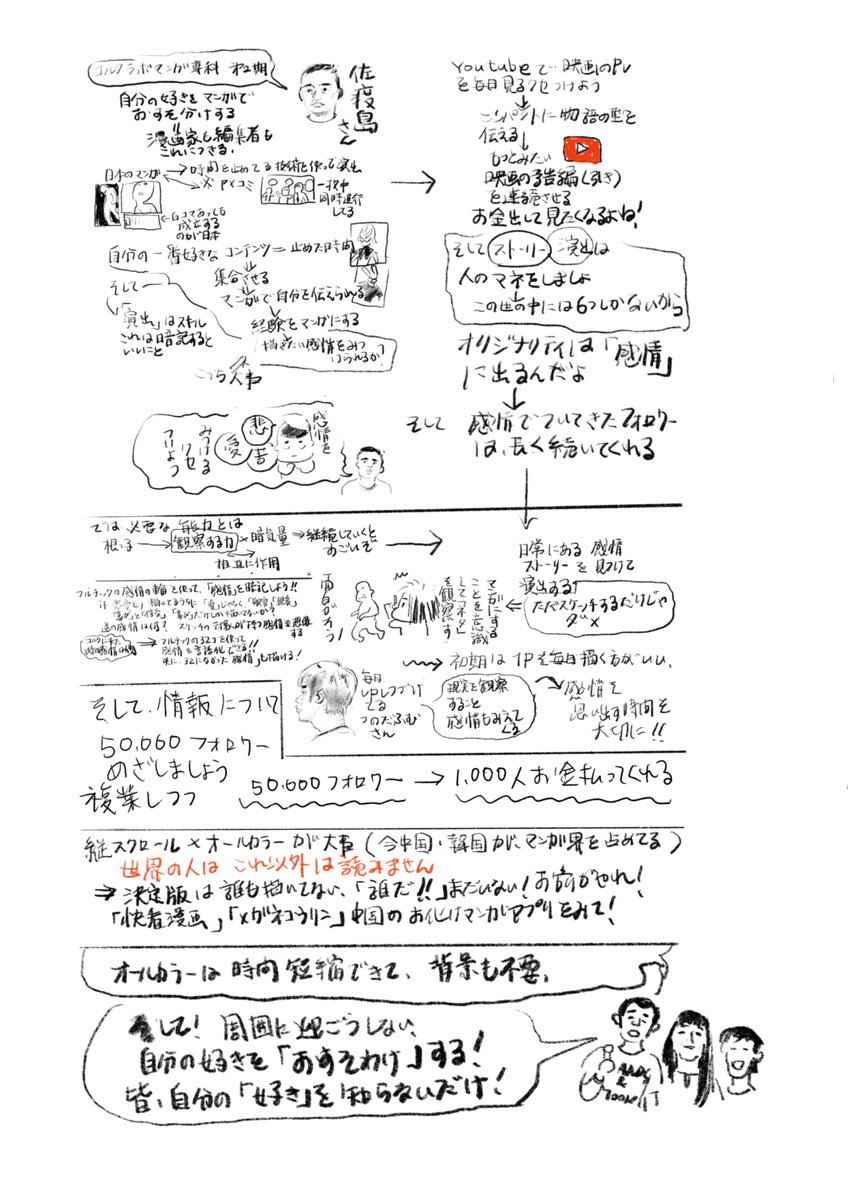 コルクラボマンガ専科 第2期
佐渡島さん
自分の好きをマンガで
おすそ分けする
漫画家も編集者も
これにつきる。
日本のマンガ
時間を止めてる技術を使って演出
一枚中
同時進行
してる
白コマであっても
成立する
のが日本
自分の一番好きなコンテンツ=止めた時間
集合させる
マンガで自分を伝えられる
そして
経験をマンガにする
「演出」はスキル
これは暗記すると
いいこと
描きたい感情をみつ
けられるか?
こっち大事
感情を
悲 苦 愛
みつける
クセ
つけよう
Youtubeで映画のPV
を毎日見るクセつけよう
コンパクトに物語の型を
伝える
もっとみたい
映画の予告編(引き)
を連続させる
お金出して見たくなるよね!
そしてストーリー 演出は
人のマネをしましょ
この世の中には6つしかないから
オリジナリティは「感情」
に出るんだよ
そして 感情でついてきたフォロワー
は、長く続いてくれる
では必要な能力とは
根っこ
観察する力×暗気量⇒継続していくと
すごいぞ
相互に作用
日常にある感情
ストーリーを見つけて
演出する!
ただスケッチするだけじゃ
ダメ
マンガにする
ことを意識
して「コネタ」
を観察す!
プルチックの感情の輪を使って、「感情」を暗記しよう!!
プルチックの32コを使って
感情を言語化できる!!
更に、32になかった感情」も描ける!
初期は1Pを毎日描く方がいい、
毎日
UPしつづけ
てる
つのだふむ
さん
現実を観察
すること
感情もみえて
くる
感情を
思い出す時間を
大切に!!
そして、情報について
50,000フォロワー
めざしましょう
複業しつつ
50,000フォロワー → 1,000人お金払ってくれる
縦スクロール×オールカラーが大事(今中国・韓国がマンガ界を占めてる)
世界の人はこれ以外は読みません
⇒決定版は誰も描いてない、「誰だ!!」まだいない!お前がやれ!
「快看漫画」「メガネコウリン」中国のお化けマンガアプリをみて!
オールカラーは時間短縮できて、背景も不要。
そして!周囲に迎ごうしない、
自分の好きを「おすそわけ」する!
皆、自分の「好き」を知らないだけ!